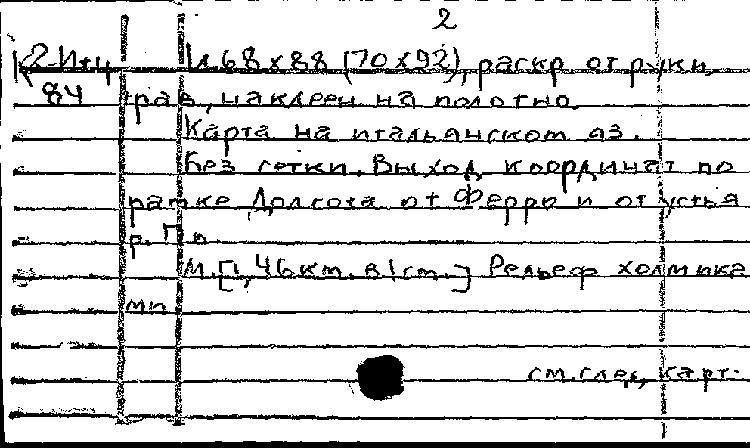 2
К2-Ит4 1л. 68х88 (70х92), раскр от руки,
84 грав, наклеен на полотно.
Карта на итальянском яз.
Без сетки. Выход координат по
рамке Долгота от Ферро и от устья
р. По
М. [1,46км. в 1см.] Рельеф холмика
ми
см. след. карт.